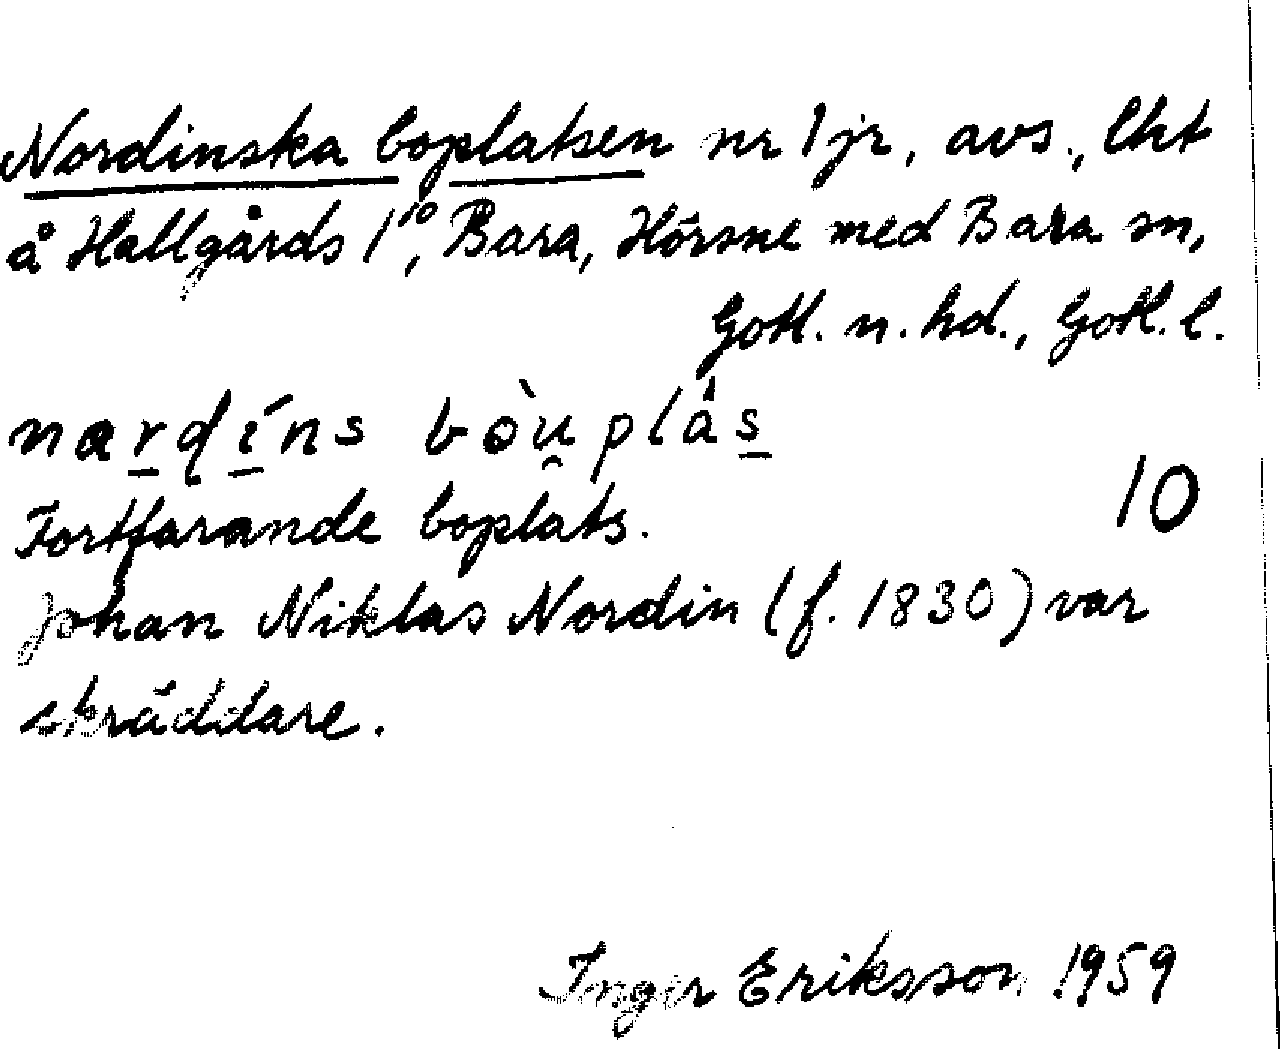 Nordinska boplatsen nr 1 jr, avs., lht
å Hallgårds 1¹⁰, Bara, Hörsne med Bara sn,
Gotl. n. hd., Gotl. l.
nardíns bòu̯plás
Fortfarande boplats.
10
Johan Niklas Nordin (f. 1830) var
skräddare.
Inger Eriksson 1959